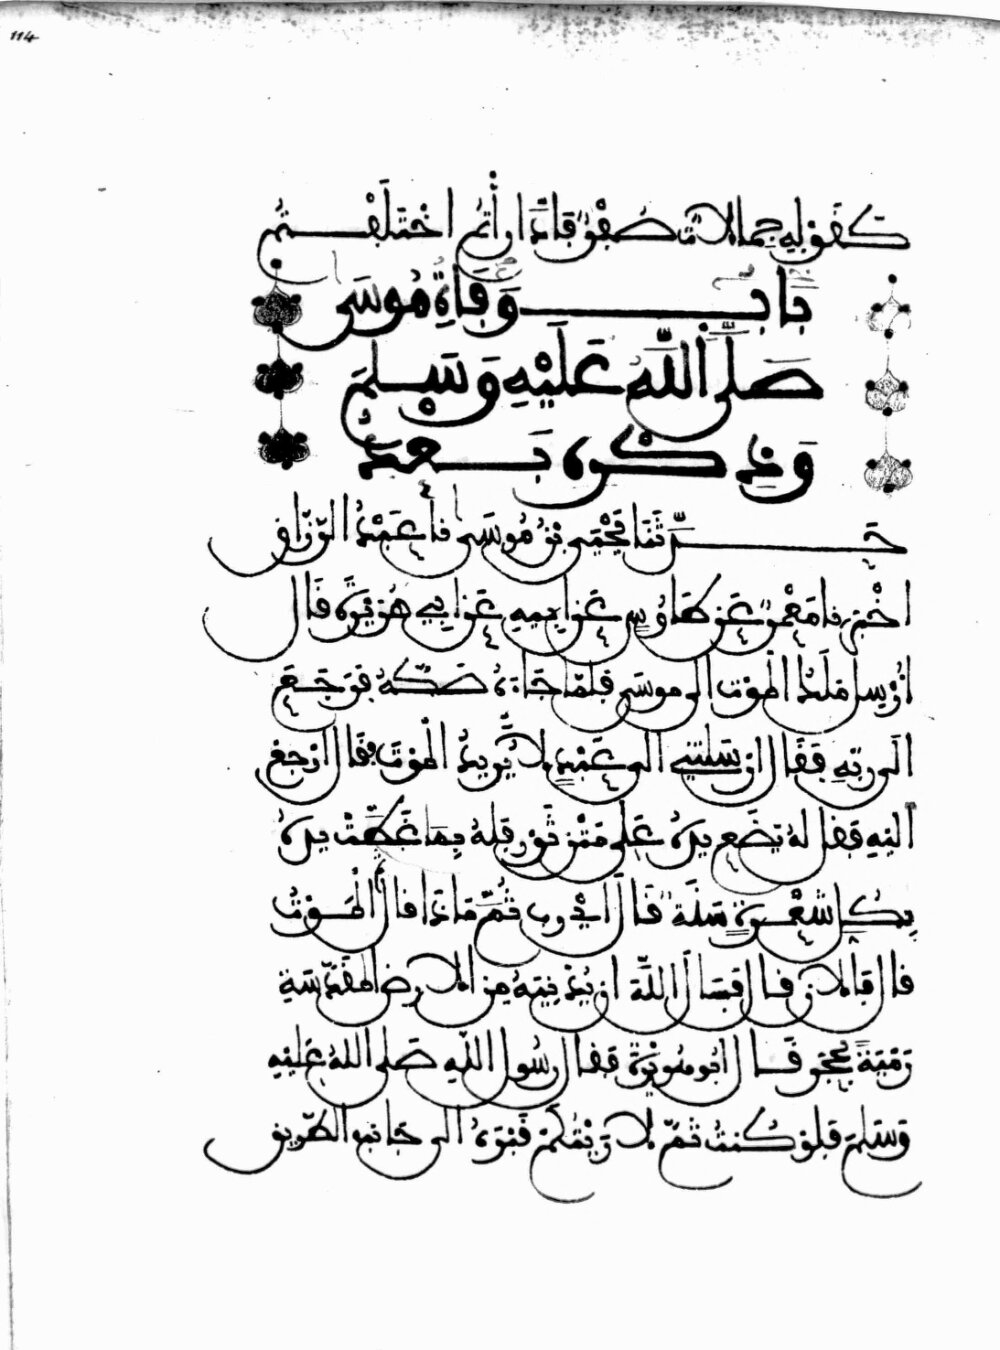 114
كَقَوْلِهِ جِمَالَاتٌ صُفْرٌ فَادَّارَأْتُمُ اخْتَلَفْتُمْ
بَابُ وَفَاةِ مُوسَى
صَلَّى اللَّهُ عَلَيْهِ وَسَلَّمَ
وَذِكْرِهِ بَعْدُ
حَدَّثَنَا يَحْيَى بْنُ مُوسَى نا عَبْدُ الرَّزَّاقِ
اخْبَرَنَا مَعْمَرٌ عَنِ ابْنِ طَاوُسٍ عَنْ ابِيهِ عَنْ ابِي هُرَيْرَةَ قَالَ
ارْسِلَ مَلَكُ الْمَوْتِ الَى مُوسَى فَلَمَّا جَاءَهُ صَكَّهُ فَرَجَعَ
الَى رَبِّهِ فَقَالَ ارْسَلْتَنِي الَى عَبْدٍ لَا يُرِيدُ الْمَوْتَ فَقَالَ ارْجِعْ
الَيْهِ فَقُلْ لَهُ يَضَعُ يَدَهُ عَلَى مَتْنِ ثَوْرٍ فَلَهُ بِمَا غَطَّتْ يَدُهُ
بِكُلِّ شَعْرَةٍ سَنَةٌ قَالَ أَيْ رَبِّ ثُمَّ مَاذَا قَالَ الْمَوْتُ
قَالَ فَالْآنَ قَالَ فَسَأَلَ اللَّهَ انْ يُدْنِيَهُ مِنَ الْأَرْضِ الْمُقَدَّسَةِ
رَمْيَةً بِحَجَرٍ قَالَ ابُو هُرَيْرَةَ فَقَالَ رَسُولُ اللَّهِ صَلَّى اللَّهُ عَلَيْهِ
وَسَلَّمَ فَلَوْ كُنْتُ ثَمَّ لَأَرَيْتُكُمْ قَبْرَهُ الَى جَانِبِ الطَّرِيقِ